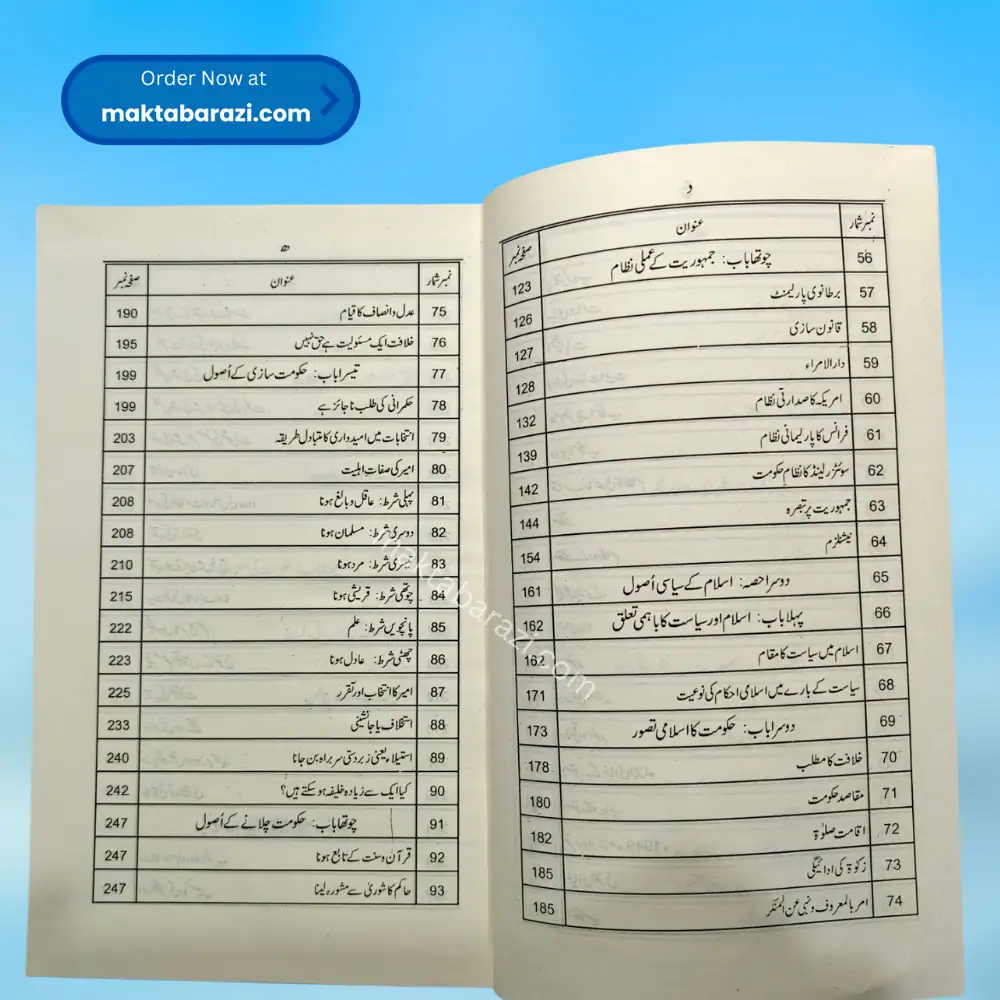 Order Now at
maktabarazi.com
د
نمبر شمار عنوان صفحہ نمبر
56 چوتھا باب: جمہوریت کے عملی نظام 123
57 برطانوی پارلیمنٹ 126
58 قانون سازی 127
59 دارالامراء 128
60 امریکہ کا صدارتی نظام 132
61 فرانس کا پارلیمانی نظام 139
62 سوئٹزرلینڈ کا نظامِ حکومت 142
63 جمہوریت پر تبصرہ 144
64 نیشنلزم 154
65 دوسرا حصہ: اسلام کے سیاسی اُصول 161
66 پہلا باب: اسلام اور سیاست کا باہمی تعلق 162
67 اسلام میں سیاست کا مقام 162
68 سیاست کے بارے میں اسلامی احکام کی نوعیت 171
69 دوسرا باب: حکومت کا اسلامی تصور 173
70 خلافت کا مطلب 178
71 مقاصدِ حکومت 180
72 اقامتِ صلوٰۃ 182
73 زکوٰۃ کی ادائیگی 185
74 امر بالمعروف ونہی عن المنکر 185
ھ
نمبر شمار عنوان صفحہ نمبر
75 عدل و انصاف کا قیام 190
76 خلافت ایک مسئولیت ہے حق نہیں 195
77 تیسرا باب: حکومت سازی کے اُصول 199
78 حکمرانی کی طلب ناجائز ہے 199
79 انتخابات میں امیدواری کا متبادل طریقہ 203
80 امیر کی صفاتِ اہلیت 207
81 پہلی شرط: عاقل و بالغ ہونا 208
82 دوسری شرط: مسلمان ہونا 208
83 تیسری شرط: مرد ہونا 210
84 چوتھی شرط: قریشی ہونا 215
85 پانچویں شرط: علم 222
86 چھٹی شرط: عادل ہونا 223
87 امیر کا انتخاب اور تقرر 225
88 استخلاف یا جانشینی 233
89 استیلاء یعنی زبردستی سربراہ بن جانا 240
90 کیا ایک سے زیادہ خلیفہ ہو سکتے ہیں؟ 242
91 چوتھا باب: حکومت چلانے کے اُصول 247
92 قرآن و سنت کے تابع ہونا 247
93 حاکم کا شوریٰ سے مشورہ لینا 247
maktabarazi.com